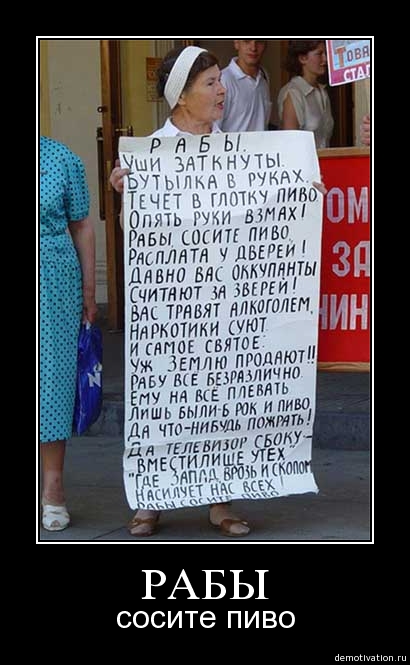 ТОВА
СТАЛ
РАБЫ.
УШИ ЗАТКНУТЫ.
БУТЫЛКА В РУКАХ.
ТЕЧЕТ В ГЛОТКУ ПИВО
ОПЯТЬ РУКИ ВЗМАХ!
РАБЫ, СОСИТЕ ПИВО,
РАСПЛАТА У ДВЕРЕЙ!
ДАВНО ВАС ОККУПАНТЫ
СЧИТАЮТ ЗА ЗВЕРЕЙ!
ВАС ТРАВЯТ АЛКОГОЛЕМ,
НАРКОТИКИ СУЮТ.
И САМОЕ СВЯТОЕ:
УЖ ЗЕМЛЮ ПРОДАЮТ!!
РАБУ ВСЁ БЕЗРАЗЛИЧНО.
ЕМУ НА ВСЁ ПЛЕВАТЬ
ЛИШЬ БЫЛИ-Б РОК И ПИВО,
ДА ЧТО-НИБУДЬ ПОЖРАТЬ!
ДА ТЕЛЕВИЗОР СБОКУ-
ВМЕСТИЛИЩЕ УТЕХ,
"ГДЕ ЗАПАД ВРОЗЬ И СКОПОМ
НАСИЛУЕТ НАС ВСЕХ!
РАБЫ СОСИТЕ ПИВО
ОМ
ЗА
НИН
N
РАБЫ
сосите пиво
demotivation.ru